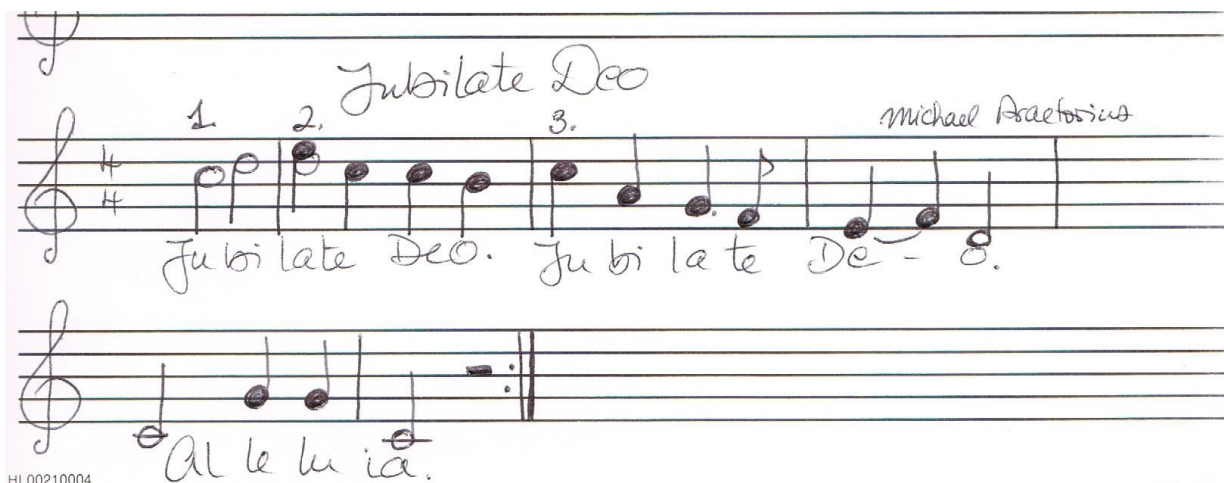 Jubilate Deo
1. 2. 3. Michael Praetorius
4
4
Jubilate Deo. Jubilate De-o.
Al le lu ia.
HL00210004